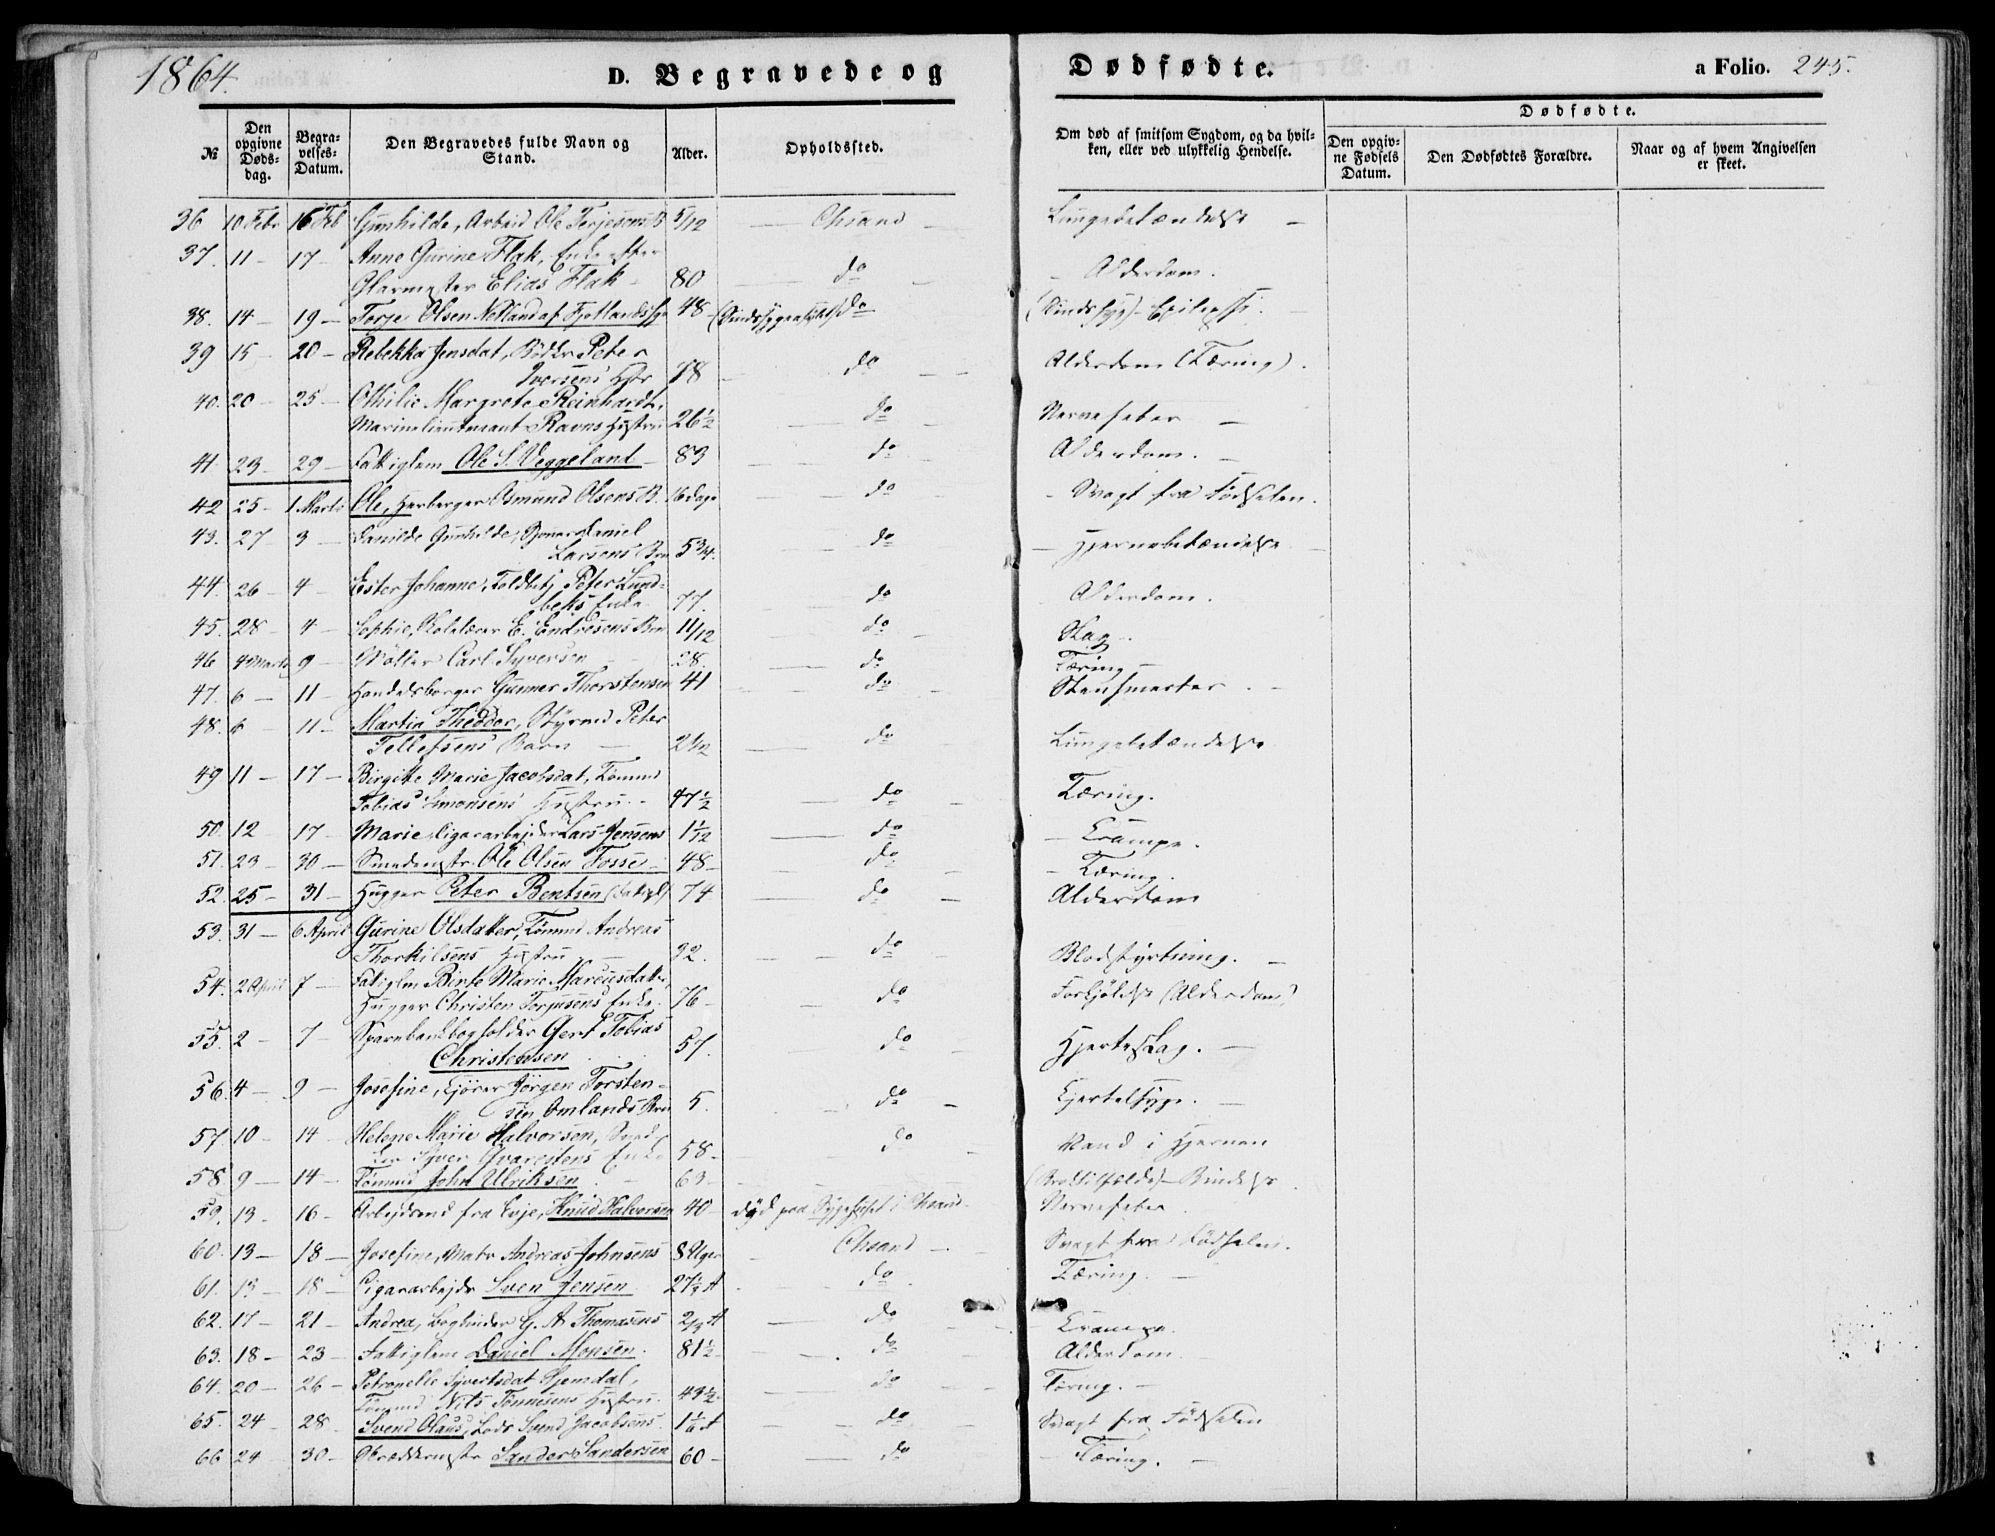 1864.
D. Begravede og Dødfødte.
a Folio. 245.
№
Den opgivne Døds-dag.
Begra-velses-Datum.
Den Begravedes fulde Navn og Stand.
Alder.
Opholdssted.
Om død af smitsom Sygdom, og da hvil-ken, eller ved ulykkelig Hendelse.
Dødfødte.
Den opgiv-ne Fødsels Datum.
Den Dødfødtes Forældre.
Naar og af hvem Angivelsen er skeet.
36 10 Febr 16 Feb Gunhilde, Arbeid Ole Terjesens B 5/12 — Chsand — Lungebetændelse —
37. 11 — 17 — Anne Gurine Flak, Enke efter
Glarmester Elias Flak — 80 — do — Alderdom.
38. 14 — 19 — Torje Olsen Netland af Fjotland 48 — (Sindssygeasylet) do (Sindssyg) Epilepsi.
39 15 — 20 — Rebekka Jensdat, Bødker Peter
Iversens Hstr 78 — do — Alderdom (Tæring).
40. 20 — 25 — Othilie Margrete Reinhardt,
Marinelieutenant Ravns Hustru 26½ do Nervefeber —
41 23 — 29 — Fattiglem Ole S. Veggeland — 83 — do — Alderdom. —
42 25 — 1 Marts Ole, Herberger Asmund Olsens B. 16 Dage — do — Svagt fra Fødselen.
43. 27 3 — Danilde Gunhilde, Daniel
Larsens Brn 5 3/4. — do — Hjernebetændelse
44. 26 — 4 — Ester Johanne, Toldbetj Peter Lund-
beks Enke 77. — do Alderdom.
45. 28 — 4 — Sophie, Skolelærer E. Endresens Brn 11/12 — do — Slag —.
46 4 Marts 9 — Møller Carl Syversen 28. — do Tæring —
47. 6 — 11 — Handelsborger Gunner Thorstensen 41 — do — Stensmerter. —
48. 6 — 11 — Martin Theodor, Styrmd Peter
Tellefsens Barn — 2 1/12 — do Lungebetændelse
49 11 — 17 — Birgitte Marie Jacobsdat, Tømmd
Tobias Simonsens Hustru. — 47½ — do — Tæring.
50. 12 17 — Marie, Cigararbejder Lars Jensens 1 1/12 — do — Krampe.
51. 23 — 30 — Smedemstr. Ole Olsen Fosse — 48 — do — Tæring.
52. 25 — 31 — Hugger Peter Bentsen (Fattigl) 74 — do — Alderdom
53. 31 — 6 April Gurine Olsdatter, Tømmd Andreas
Thorkilsens Hustru — do — Blodstyrtning. —
54. 2 April 7 — Fattiglem Birte Marie Marcusdatter,
Hugger Christen Terjusens Enke. 76 — do Forkjølelse (Alderdom)
55. 2 — 7 — Sparebankbogholder Gert Tobias
Christensen 57. — do — Hjerteslag. —
56. 4 — 9 — Josefine, Kjører Jørgen Torsten-
sen Omlands Brn 5. — do — Kjertelsyge. —
57. 10 — 14 — Helene Marie Halvorsen,
Syver Enke 58 — do — Vand i Hjernen
58. 9 — 14 — Tømmd John Ulriksen 63 —
59. 13 — 16 — Arbejdsmd fra Evje, Knud Halvorsen 40 — død paa Sygehuset i Chsand. Nervefeber
60. 13 — 18 — Josefine, Matr Andreas Johnsens 8 Uger — Chsand — Svagt fra Fødselen.
61. 13 — 18 — Cigararbejdr Sven Jensen do — Tæring. —
62. 17 — 21 — Andrea, Bogbinder G. A Thomasens — do Krampe.
63. 18 — 23 — Fattiglem Daniel Monsen. 81½ — do Alderdom
64. 20 — 26 — Petronelle Syvertsdat Hjemdal,
Tømmd Nils Tønnesens Hustru. 43½ — do — Tæring. —
65. 24 — 28 — Svend Olaus, Lods Svend Jacobsens — do Svagt fra Fødselen
66 24 — 30 — Sander Sandersen 60 — do — Tæring. —